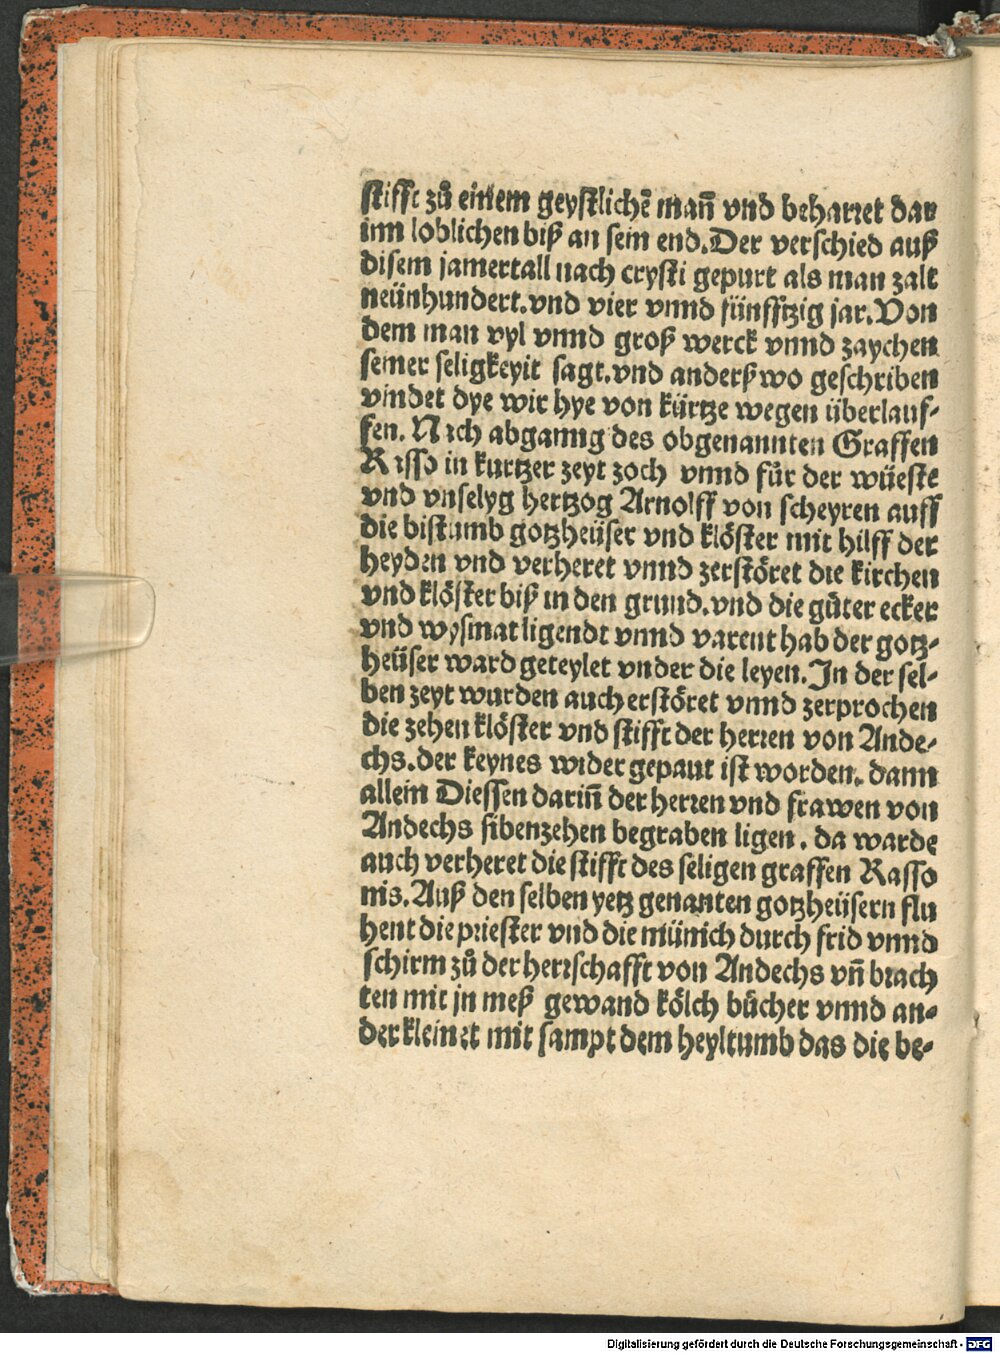 stifft zů einem geystlichē mañ vnd beharret dar
inn loblichen biß an sein end. Der verschied auß
disem jamertall nach crysti gepurt als man zalt
neünhundert. vnd vier vnnd fünfftzig jar. Von
dem man vyl vnnd groß werck vnnd zaychen
seiner seligkeyit sagt. vnd anderß wo geschriben
vindet dye wir hye von kürtze wegen überlauf-
fen. Nach abganng des obgenannten Graffen
Rasso in kurtzer zeyt zoch vnnd für der wüeste
vnd vnselyg hertzog Arnolff von scheyren auff
die bistumb gotzheüser vnd klöster mit hilff der
heyden vnd verheret vnnd zerstöret die kirchen
vnd klöster biß in den grund. vnd die güter ecker
vnd wysmat ligendt vnnd varent hab der gotz-
heüser ward geteylet vnder die leyen. In der sel-
ben zeyt wurden auch erstöret vnnd zerprochen
die zehen klöster vnd stifft der herren von Ande-
chs. der keynes wider gepaut ist worden. dann
allein Diessen dariñ der herren vnd frawen von
Andechs sibenzehen begraben ligen. da warde
auch verheret die stifft des seligen graffen Rasso
nis. Auß den selben yetz genanten gotzheüsern flu
hent die priester vnd die münich durch frid vnnd
schirm zů der herrschafft von Andechs vñ brach
ten mit jn meß gewand kölch bücher vnnd an-
der kleinet mit sampt dem heyltumb das die be-
Digitalisierung gefördert durch die Deutsche Forschungsgemeinschaft - DFG